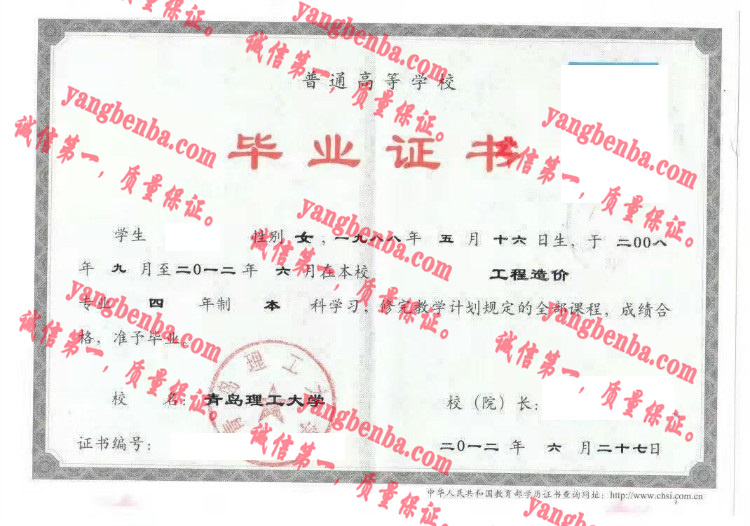 普通高等学校
毕业证书
学生 性别 女，一九八八年 五 月 十六日生，于 二00八
年 九 月至二0一二年 六 月在本校 工程造价
专业 四 年制 本 科学习，修完教学计划规定的全部课程，成绩合
格，准予毕业。
校 名：青岛理工大学 校（院）长：
证书编号： 二0一二 年 六 月 二十七日
中华人民共和国教育部学历证书查询网址：http://www.chsi.com.cn
青岛理工大学
yangbenba.com
诚信第一，质量保证。
yangbenba.com
诚信第一，质量保证。
yangbenba.com
诚信第一，质量保证。
yangbenba.com
诚信第一，质量保证。
yangbenba.com
诚信第一，质量保证。
yangbenba.com
诚信第一，质量保证。
yangbenba.com
诚信第一，质量保证。